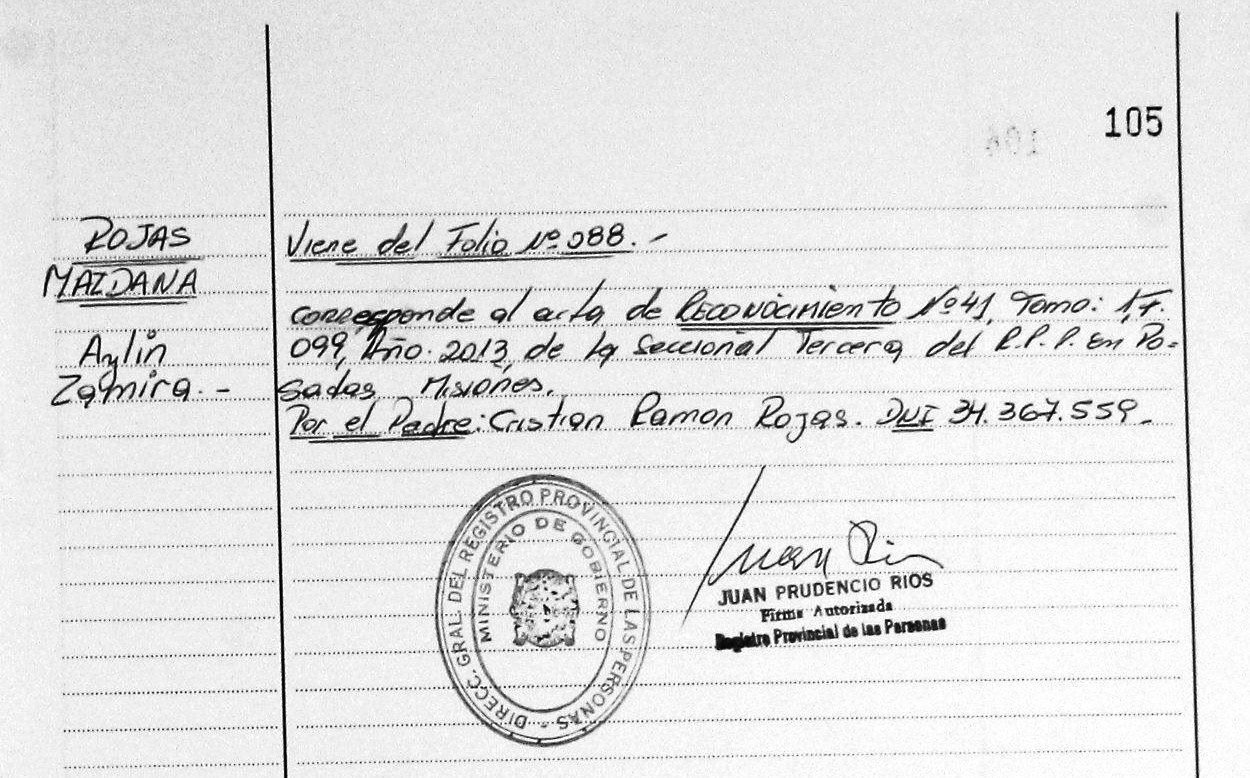 105
ROJAS
MAIDANA
Aylin
Zamira. -
Viene del Folio Nº 088. -
corresponde al acta de Reconocimiento Nº 41, Tomo: 1, F.
099, Año. 2013, de la Seccional Tercera del R.P.P. en Po-
sadas, Misiones.
Por el Padre: Cristian Ramon Rojas. DNI 34.367.559. -
DIRECC. GRAL. DEL REGISTRO PROVINCIAL DE LAS PERSONAS -
MINISTERIO DE GOBIERNO
JUAN PRUDENCIO RIOS
Firma Autorizada
Registro Provincial de las Personas